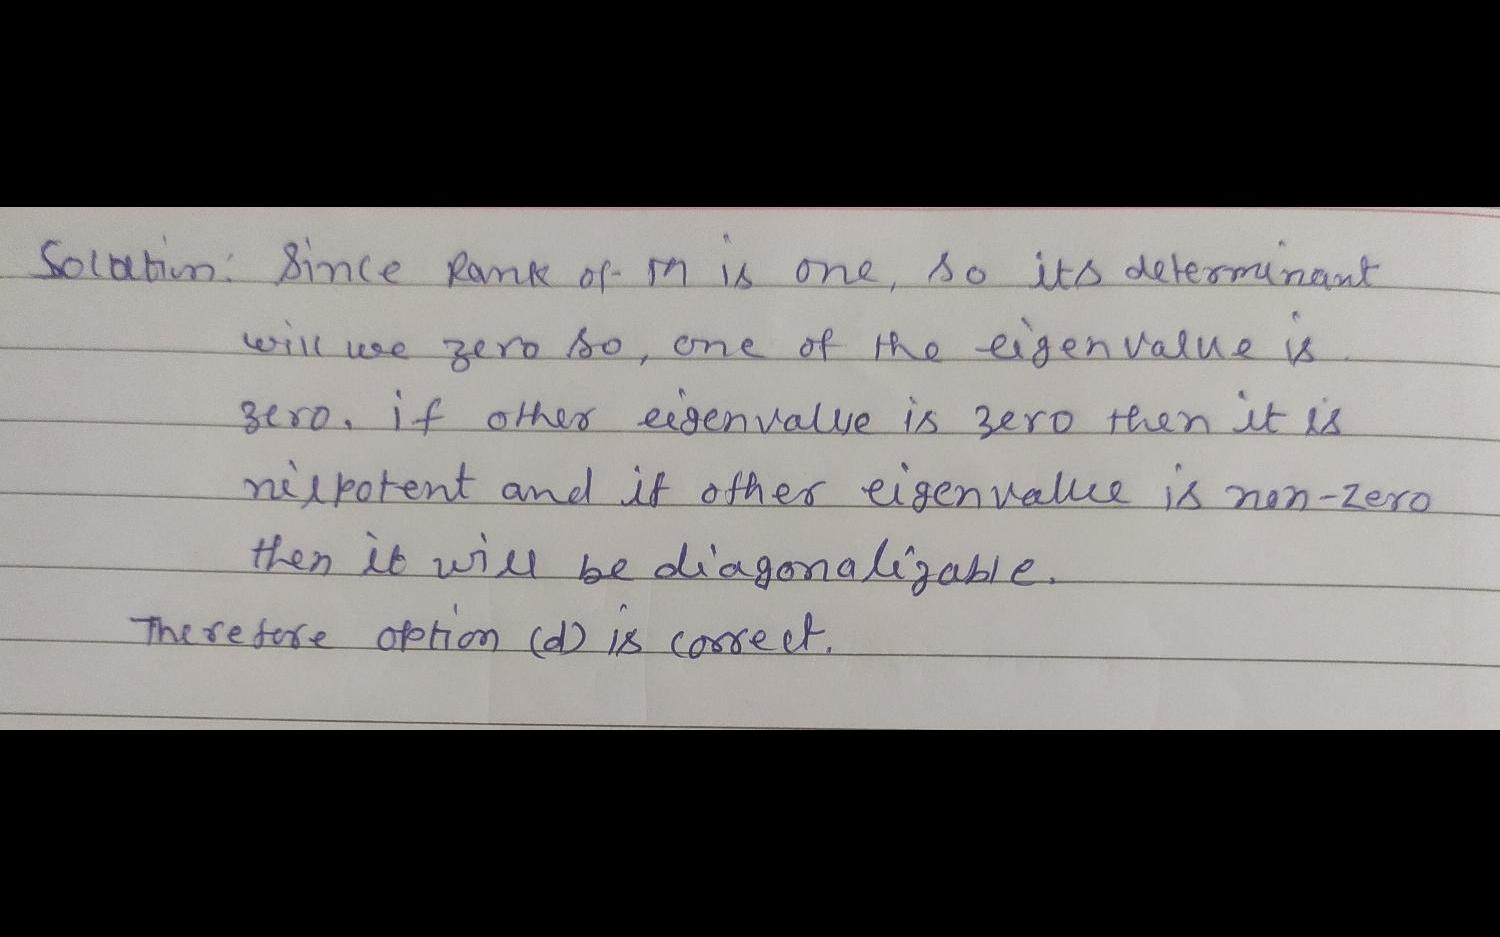 Solution: Since Rank of M is one, so its determinant
will we zero so, one of the eigenvalue is
zero. if other eigenvalue is zero then it is
nilpotent and if other eigenvalue is non-zero
then it will be diagonalizable.
Therefore option (d) is correct.